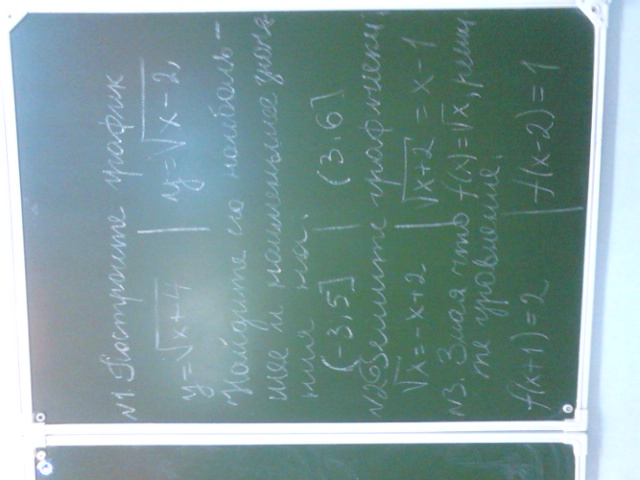 №1 Постройте график
y=√x+4 | y=√x-2,
Найдите его наиболь-
шее и наименьшее значе
ния на:
(-3;5] | (3;6]
№2 Решите графически
√x=-x+2 | √x+2=x-1
№3. Зная что f(x)=√x, реши
те уравнение.
f(x+1)=2 | f(x-2)=1